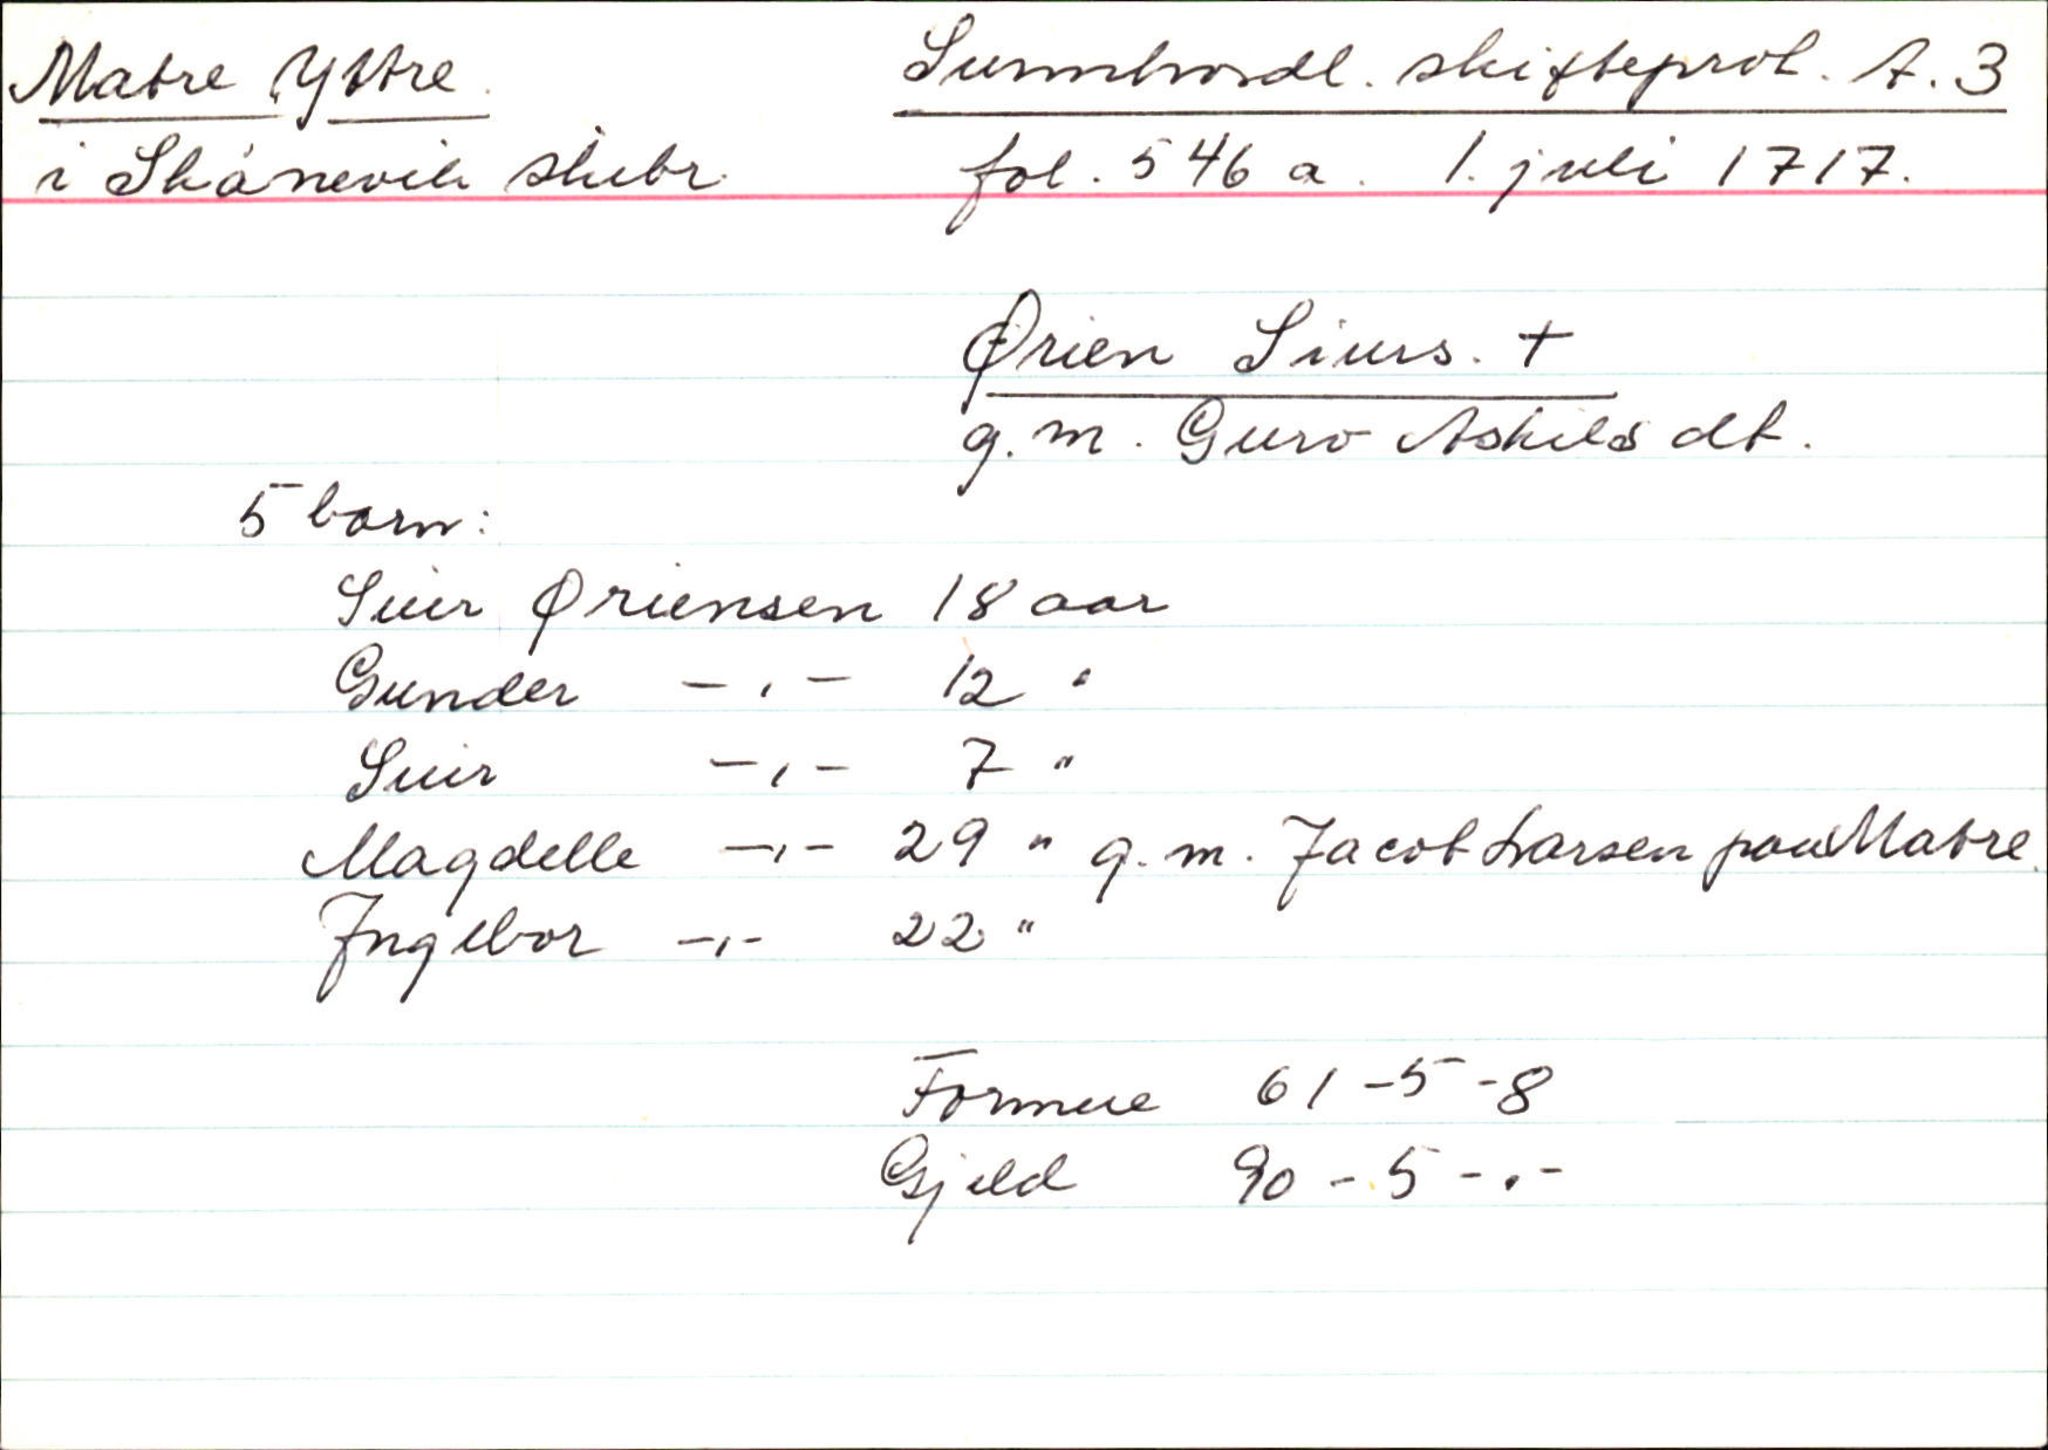 Matre Yttre.
i Skånevik skibr.
Sunnhordl. skifteprot. A. 3
fol. 546 a. 1. juli 1717.
Ørien Siurs. +
g. m. Guro Askilsdt.
5 born:
Siur Øriensen 18 aar
Gunder -„- 12 "
Siur -„- 7 "
Magdelle -„- 29 " g. m. Jacob Larsen paa Matre.
Ingebor -„- 22 "
Formue 61-5-8
Gjeld 90-5-.-